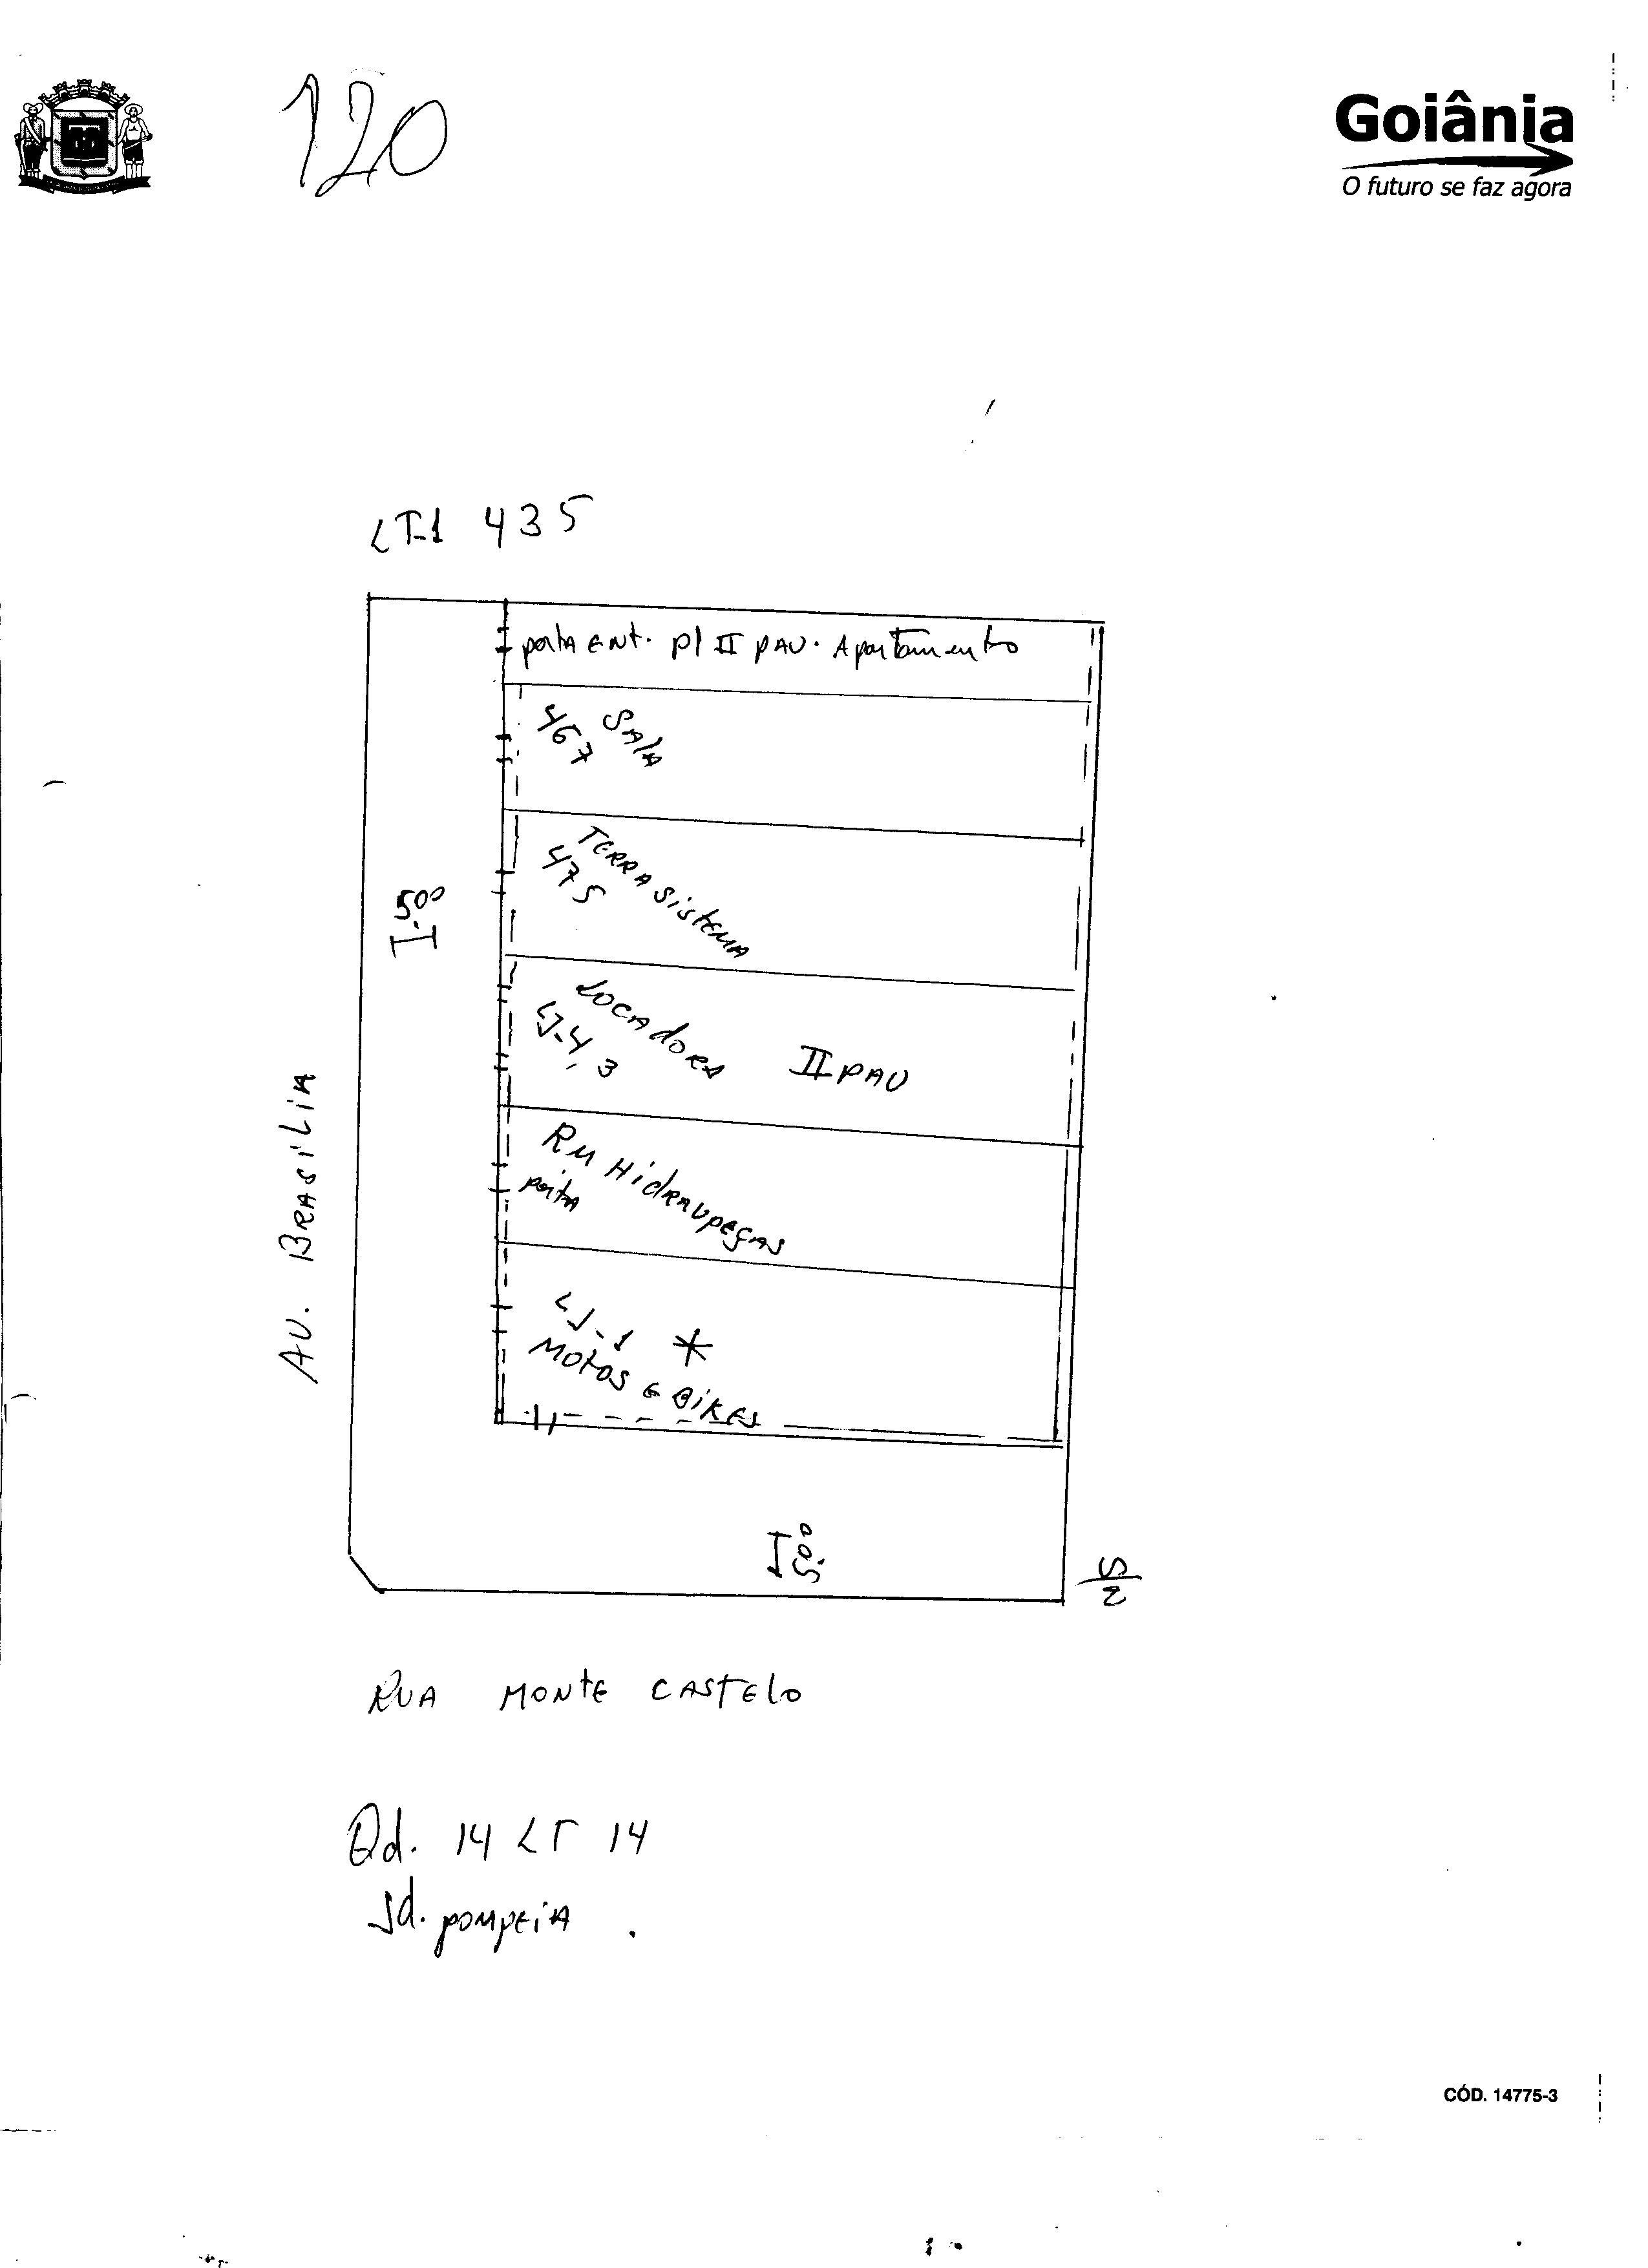 120
Goiânia
O futuro se faz agora
LT-1 435
porta ENt. p/ II PAV. Apartamento
467 SAlA
TERRA SistEMA
475
LOCAdORA
LJ-4, 3
II PAV
RM HidRAupEçAs
porta
LJ-1 *
MOtOS E BiKES
I 5.00
AV. BRASíLiA
I 5.00
RUA MONtE CAStElo
Qd. 14 LT 14
Jd. POMPEiA.
CÓD. 14775-3